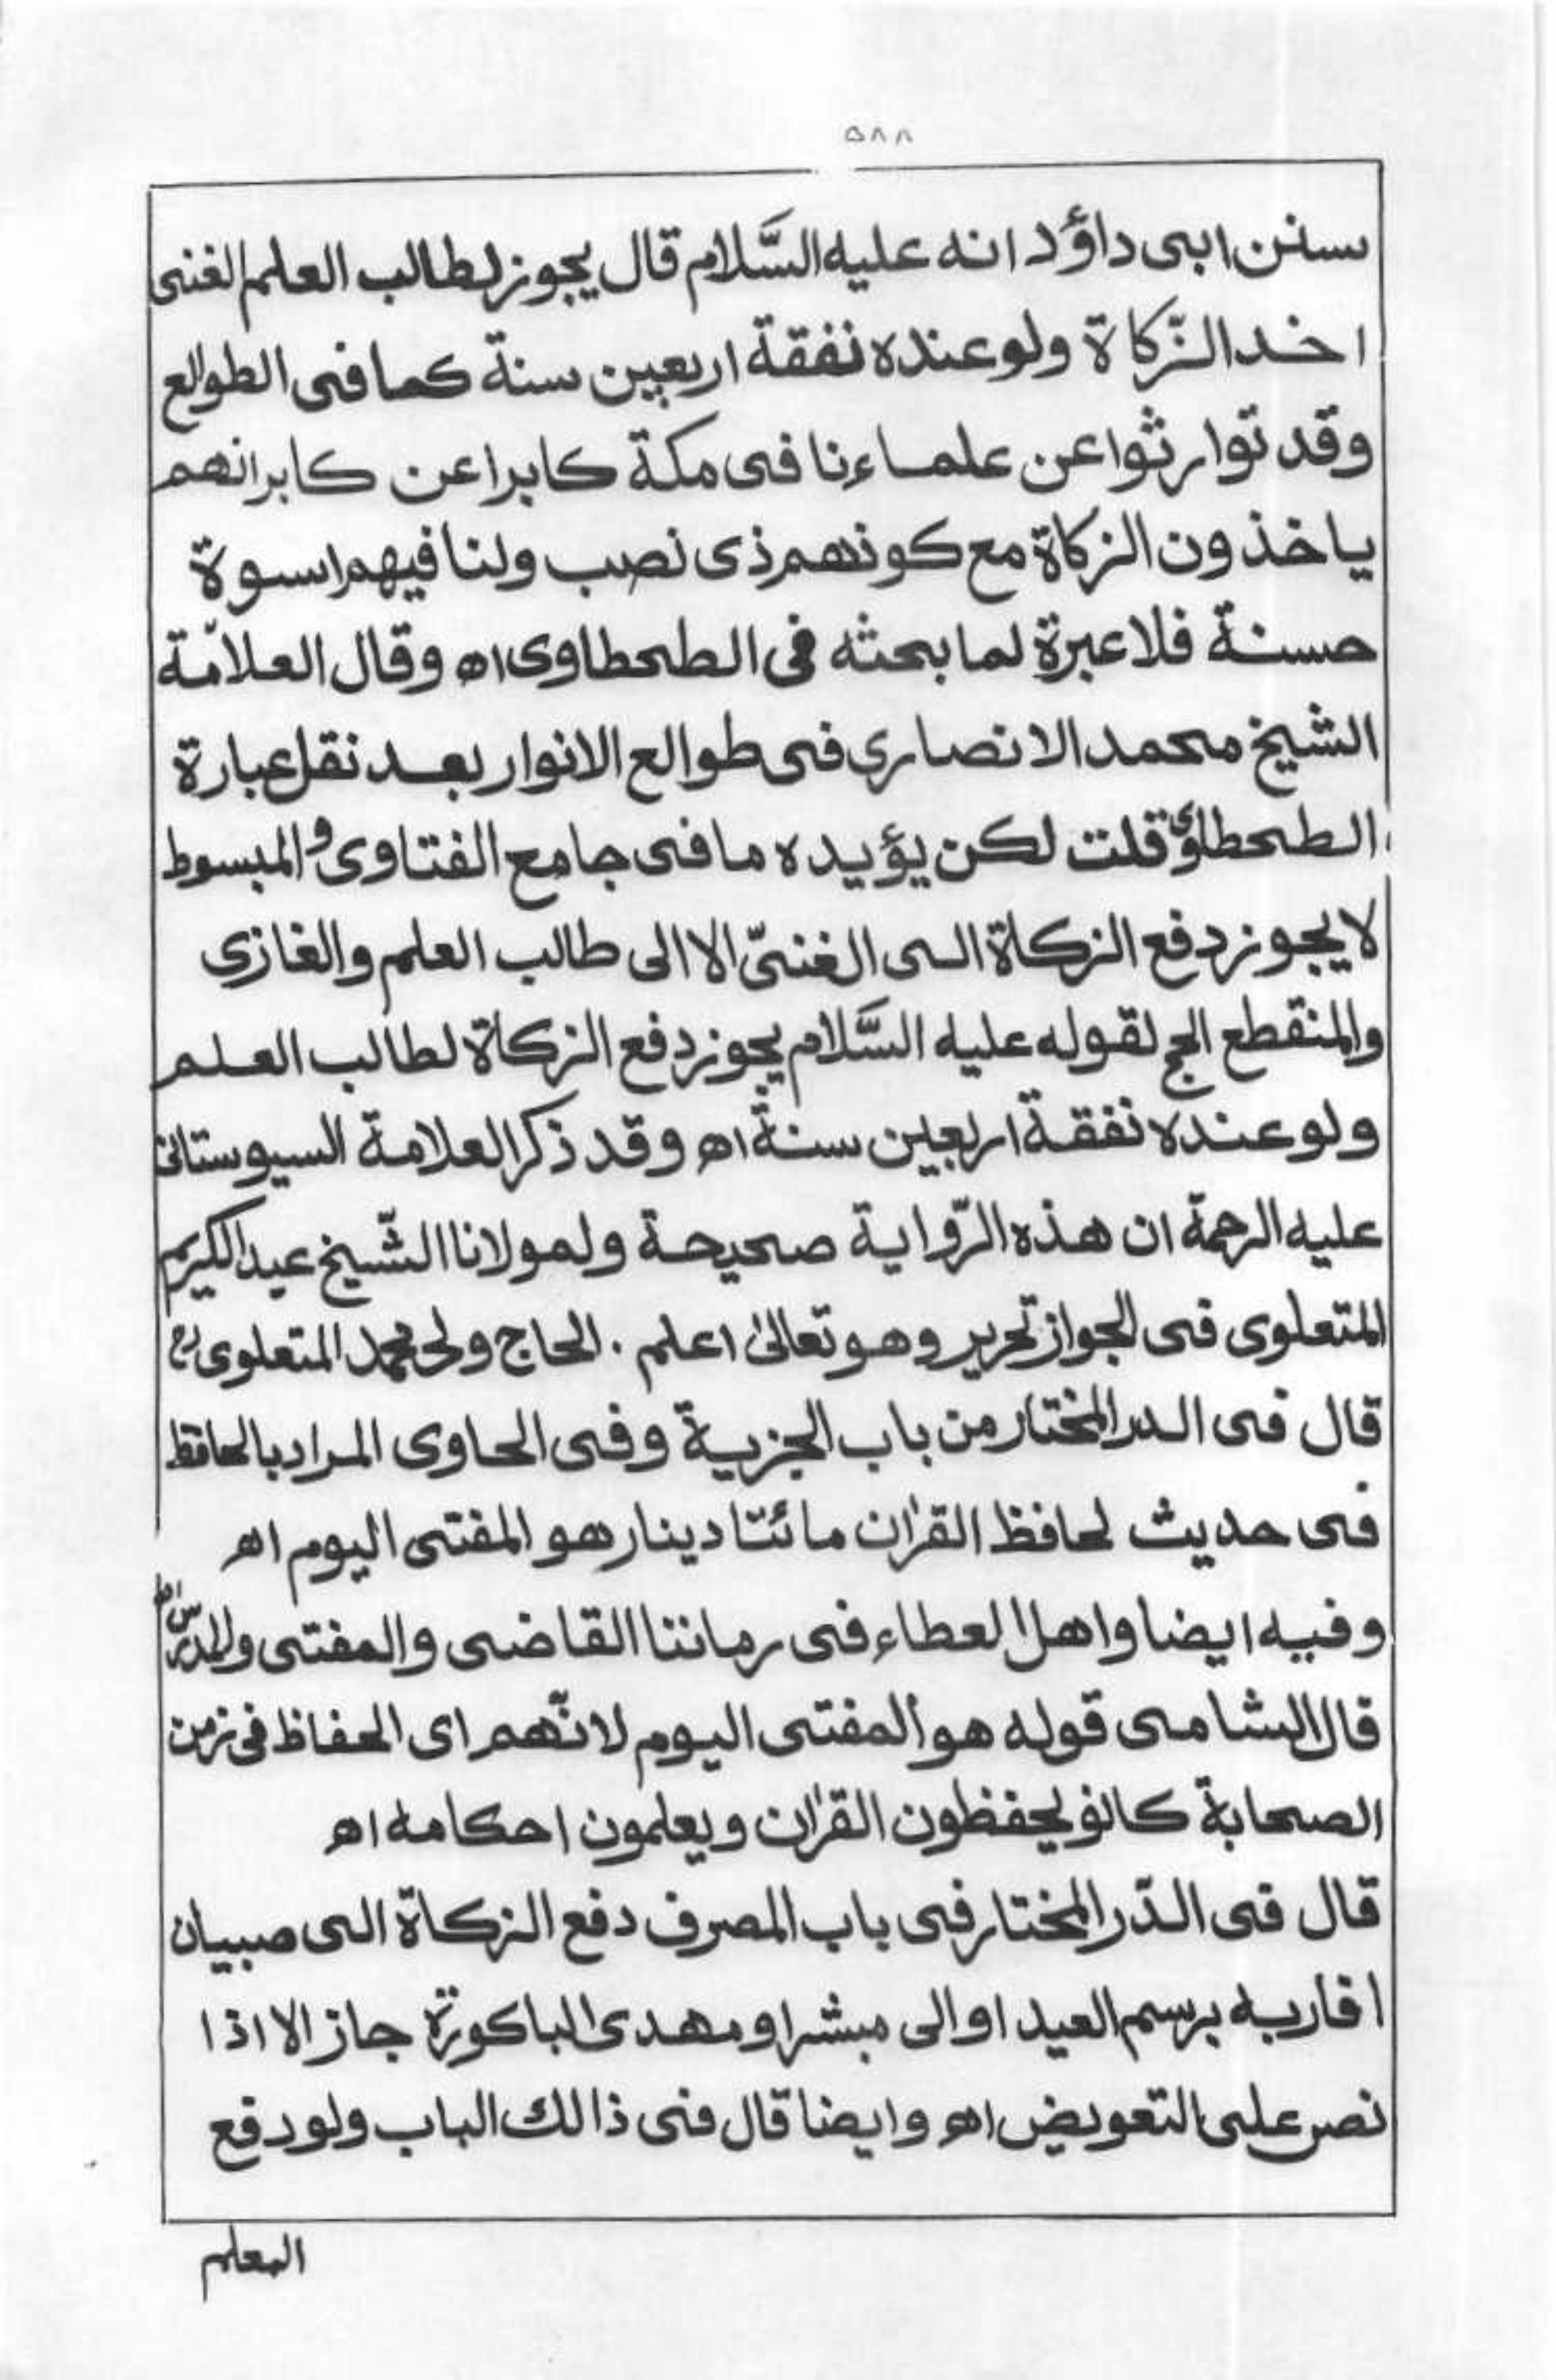 ٥٨٨
سنن ابی داؤد انه علیه السَّلام قال یجوز لطالب العلم الغنی
اخد الزّکاة ولو عنده نفقة اربعین سنة کما فی الطوالع
وقد توارثوا عن علماءنا فی مکة کابرا عن کابر انهم
یاخذون الزکاة مع کونهم ذی نصب ولنا فیهم اسوة
حسنة فلا عبرة لما بحثه فی الطحطاوی اه وقال العلامّة
الشیخ محمد الانصاری فی طوالع الانوار بعد نقل عبارة
الطحطاوی قلت لکن یؤیده ما فی جامع الفتاوی و المبسوط
لا یجوز دفع الزکاة الی الغنیّ الا الی طالب العلم والغازی
والمنقطع الحج لقوله علیه السَّلام یجوز دفع الزکاة لطالب العلم
ولو عنده نفقة اربعین سنة اه وقد ذکر العلامة السیوستانی
علیه الرحمة ان هذه الرّوایة صحیحة ولمولانا الشّیخ عبد الکریم
المتعلوی فی الجواز تحریر وهو تعالیٰ اعلم . الحاج ولی محمد المتعلوی رح
قال فی الدر المختار من باب الجزیة وفی الحاوی المراد بالحافظ
فی حدیث لحافظ القرٰان مائتا دینار هو المفتی الیوم اه
وفیه ایضا واهل العطاء فی رماننا القاضی والمفتی والمدرّس اه
قال الشامی قوله هو المفتی الیوم لانّهم ای الحفاظ فی زمن
الصحابة کانو یحفظون القرٰان ویعلمون احکامه اه
قال فی الدّر المختار فی باب المصرف دفع الزکاة الی صبیان
اقاربه برسم العید او الی مبشر او مهدی الباکورة جاز الا اذا
نص علی التعویض اه وایضا قال فی ذالك الباب ولو دفع
المعلم